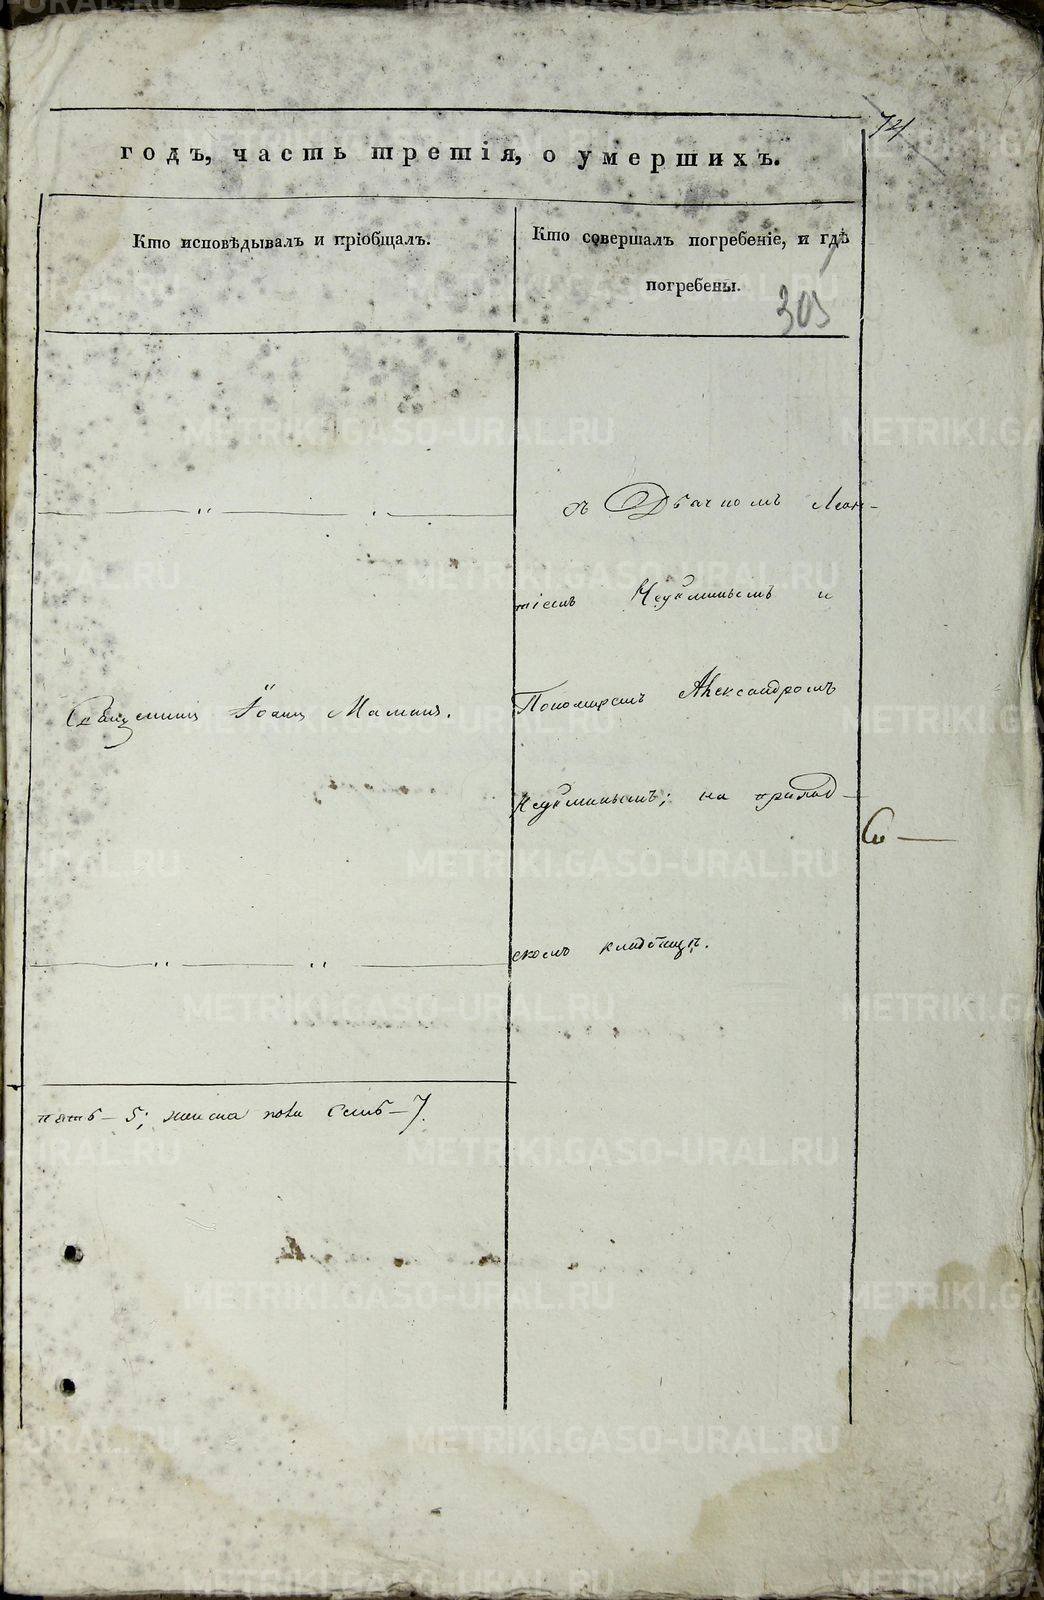 74
годъ, часть третія, о умершихъ.
Кто исповѣдывалъ и пріобщалъ.
Кто совершалъ погребеніе, и гдѣ
погребены.
303
съ Дьячкомъ Леон-
тіемъ
и
Священникъ Іоаннъ Маминъ.
Пономаремъ Александромъ
на приход-
скомъ кладбищѣ.
пять – 5; женска пола Семь – 7.
METRIKI.GASO-URAL.RU